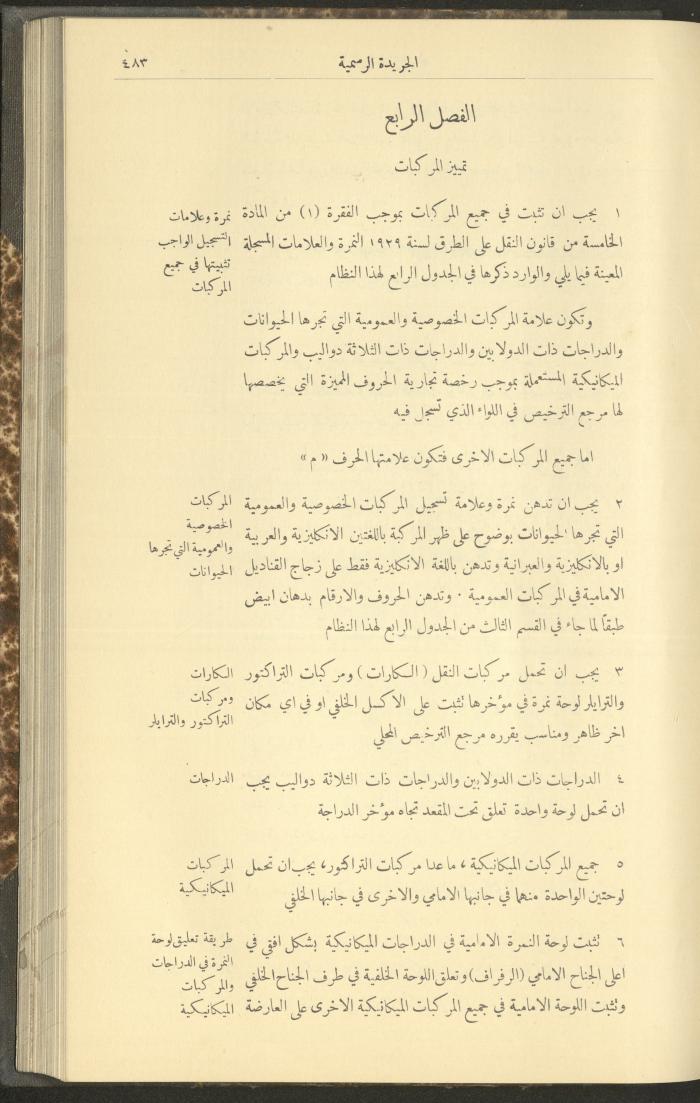 الجريدة الرسمية
٤٨٣
الفصل الرابع
تمييز المركبات
١ يجب ان تثبت في جميع المركبات بموجب الفقرة (١) من المادة
الخامسة من قانون النقل على الطرق لسنة ١٩٢٩ النمرة والعلامات المسجلة
المعينة فيما يلي والوارد ذكرها في الجدول الرابع لهذا النظام
نمرة وعلامات
التسجيل الواجب
تثبيتها في جميع
المركبات
وتكون علامة المركبات الخصوصية والعمومية التي تجرها الحيوانات
والدراجات ذات الدولابين والدراجات ذات الثلاثة دواليب والمركبات
الميكانيكية المستعملة بموجب رخصة تجارية الحروف المميزة التي يخصصها
لها مرجع الترخيص في اللواء الذي تسجل فيه
اما جميع المركبات الاخرى فتكون علامتها الحرف « م »
٢ يجب ان تدهن نمرة وعلامة تسجيل المركبات الخصوصية والعمومية
التي تجرها الحيوانات بوضوح على ظهر المركبة باللغتين الانكليزية والعربية
او بالانكليزية والعبرانية وتدهن باللغة الانكليزية فقط على زجاج القناديل
الامامية في المركبات العمومية ٠ وتدهن الحروف والارقام بدهان ابيض
طبقًا لما جاء في القسم الثالث من الجدول الرابع لهذا النظام
المركبات
الخصوصية
والعمومية التي تجرها
الحيوانات
٣ يجب ان تحمل مركبات النقل (الكارات) ومركبات التراكتور
والترايلر لوحة نمرة في مؤخرها تثبت على الاكسل الخلفي او في اي مكان
اخر ظاهر ومناسب يقرره مرجع الترخيص المحلي
الكارات
ومركبات
التراكتور والترايلر
٤ الدراجات ذات الدولابين والدراجات ذات الثلاثة دواليب يجب
ان تحمل لوحة واحدة تعلق تحت المقعد تجاه مؤخر الدراجة
الدراجات
٥ جميع المركبات الميكانيكية، ماعدا مركبات التراكتور، يجب ان تحمل
لوحتين الواحدة منهما في جانبها الامامي والاخرى في جانبها الخلفي
المركبات
الميكانيكية
٦ تثبت لوحة النمرة الامامية في الدراجات الميكانيكية بشكل افقي في
اعلى الجناح الامامي (الرفراف) وتعلق اللوحة الخلفية في طرف الجناح الخلفي
وتثبت اللوحة الامامية في جميع المركبات الميكانيكية الاخرى على العارضة
طريقة تعليق لوحة
النمرة في الدراجات
والمركبات
الميكانيكية